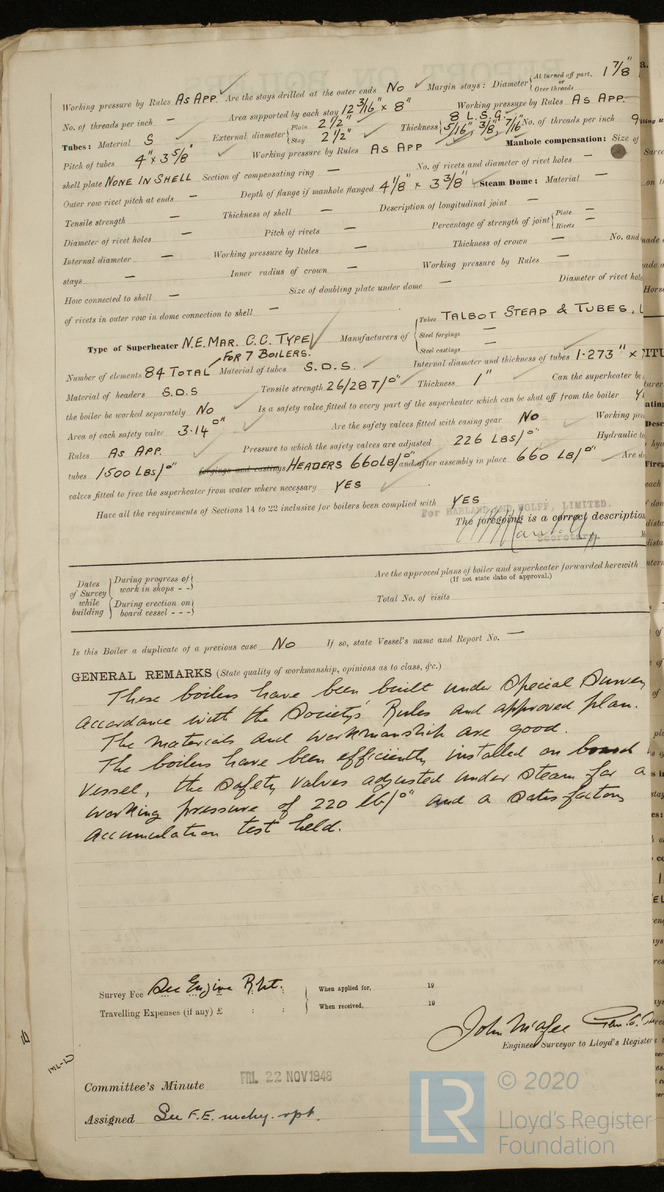 Working pressure by Rules AS APP. Are the stays drilled at the outer ends NO Margin stays: Diameter { At turned off part, or Over threads 1 7/8"
No. of threads per inch — Area supported by each stay 12 3/16" × 8" Working pressure by Rules AS APP.
Tubes: Material S External diameter { Plain 2 1/2" Stay 2 1/2" Thickness { 8 L.S.G. 5/16" 3/8" 7/16" No. of threads per inch 9
Pitch of tubes 4" × 3 5/8" Working pressure by Rules AS APP Manhole compensation: Size of
shell plate NONE IN SHELL Section of compensating ring — No. of rivets and diameter of rivet holes —
Outer row rivet pitch at ends — Depth of flange if manhole flanged 4 1/8" × 3 3/8" Steam Dome: Material —
Tensile strength — Thickness of shell — Description of longitudinal joint —
Diameter of rivet holes — Pitch of rivets — Percentage of strength of joint { Plate — Rivets —
Internal diameter — Working pressure by Rules — Thickness of crown — No. and
stays — Inner radius of crown — Working pressure by Rules —
How connected to shell — Size of doubling plate under dome — Diameter of rivet hole
of rivets in outer row in dome connection to shell —
Type of Superheater N.E. MAR. C.C. TYPE FOR 7 BOILERS. Manufacturers of { Tubes TALBOT STEAD & TUBES, L
Steel forgings —
Steel castings —
Number of elements 84 TOTAL Material of tubes S.D.S. Internal diameter and thickness of tubes 1.273" ×
Material of headers S.D.S Tensile strength 26/28 T/□" Thickness 1" Can the superheater be
the boiler be worked separately NO Is a safety valve fitted to every part of the superheater which can be shut off from the boiler Y
Area of each safety valve 3.14 □" Are the safety valves fitted with easing gear NO Working pre
Rules AS APP. Pressure to which the safety valves are adjusted 226 LBS/□" Hydraulic t
tubes 1500 LBS/□" forgings and castings HEADERS 660LB/□" and after assembly in place 660 LB/□" Are d
valves fitted to free the superheater from water where necessary YES
Have all the requirements of Sections 14 to 22 inclusive for boilers been complied with YES
For HARLAND AND WOLFF, LIMITED.
The foregoing is a correct description
Secretary.
Dates of Survey while building { During progress of work in shops - -
During erection on board vessel - - -
Are the approved plans of boiler and superheater forwarded herewith
(If not state date of approval.)
Total No. of visits
Is this Boiler a duplicate of a previous case NO If so, state Vessel's name and Report No. —
GENERAL REMARKS (State quality of workmanship, opinions as to class, &c.)
These boilers have been built under Special Survey
accordance with the Society's Rules and approved plan.
The materials and workmanship are good.
The boilers have been efficiently installed on board
vessel, the safety valves adjusted under steam for a
working pressure of 220 lb/□" and a satisfactory
accumulation test held.
Survey Fee See Engine Rpt. When applied for, 19
Travelling Expenses (if any) £ : : When received, 19
John McAfee
Engineer Surveyor to Lloyd's Register
Committee's Minute FRI. 22 NOV 1946
Assigned See F.E. mchy. rpt.
© 2020
LR Lloyd's Register
Foundation